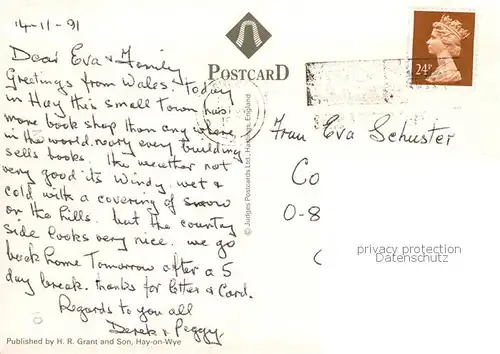 14-11-91
Dear Eva & Family
Greetings from Wales. Today
in Hay this small Town has
more book shop than any where
in the world, nearly every building
sells books. The weather not
very good its windy, wet &
cold with a covering of snow
on the hills. but the country
side looks very nice. we go
back home Tomorrow after a 5
day break. thanks for letter & Card.
Regards to you all
Derek & Peggy.
Published by H. R. Grant and Son, Hay-on-Wye
POSTCARD
© Judges Postcards Ltd., Hastings, England
24P
Frau Eva Schuster
Co
O-8
privacy protection
Datenschutz